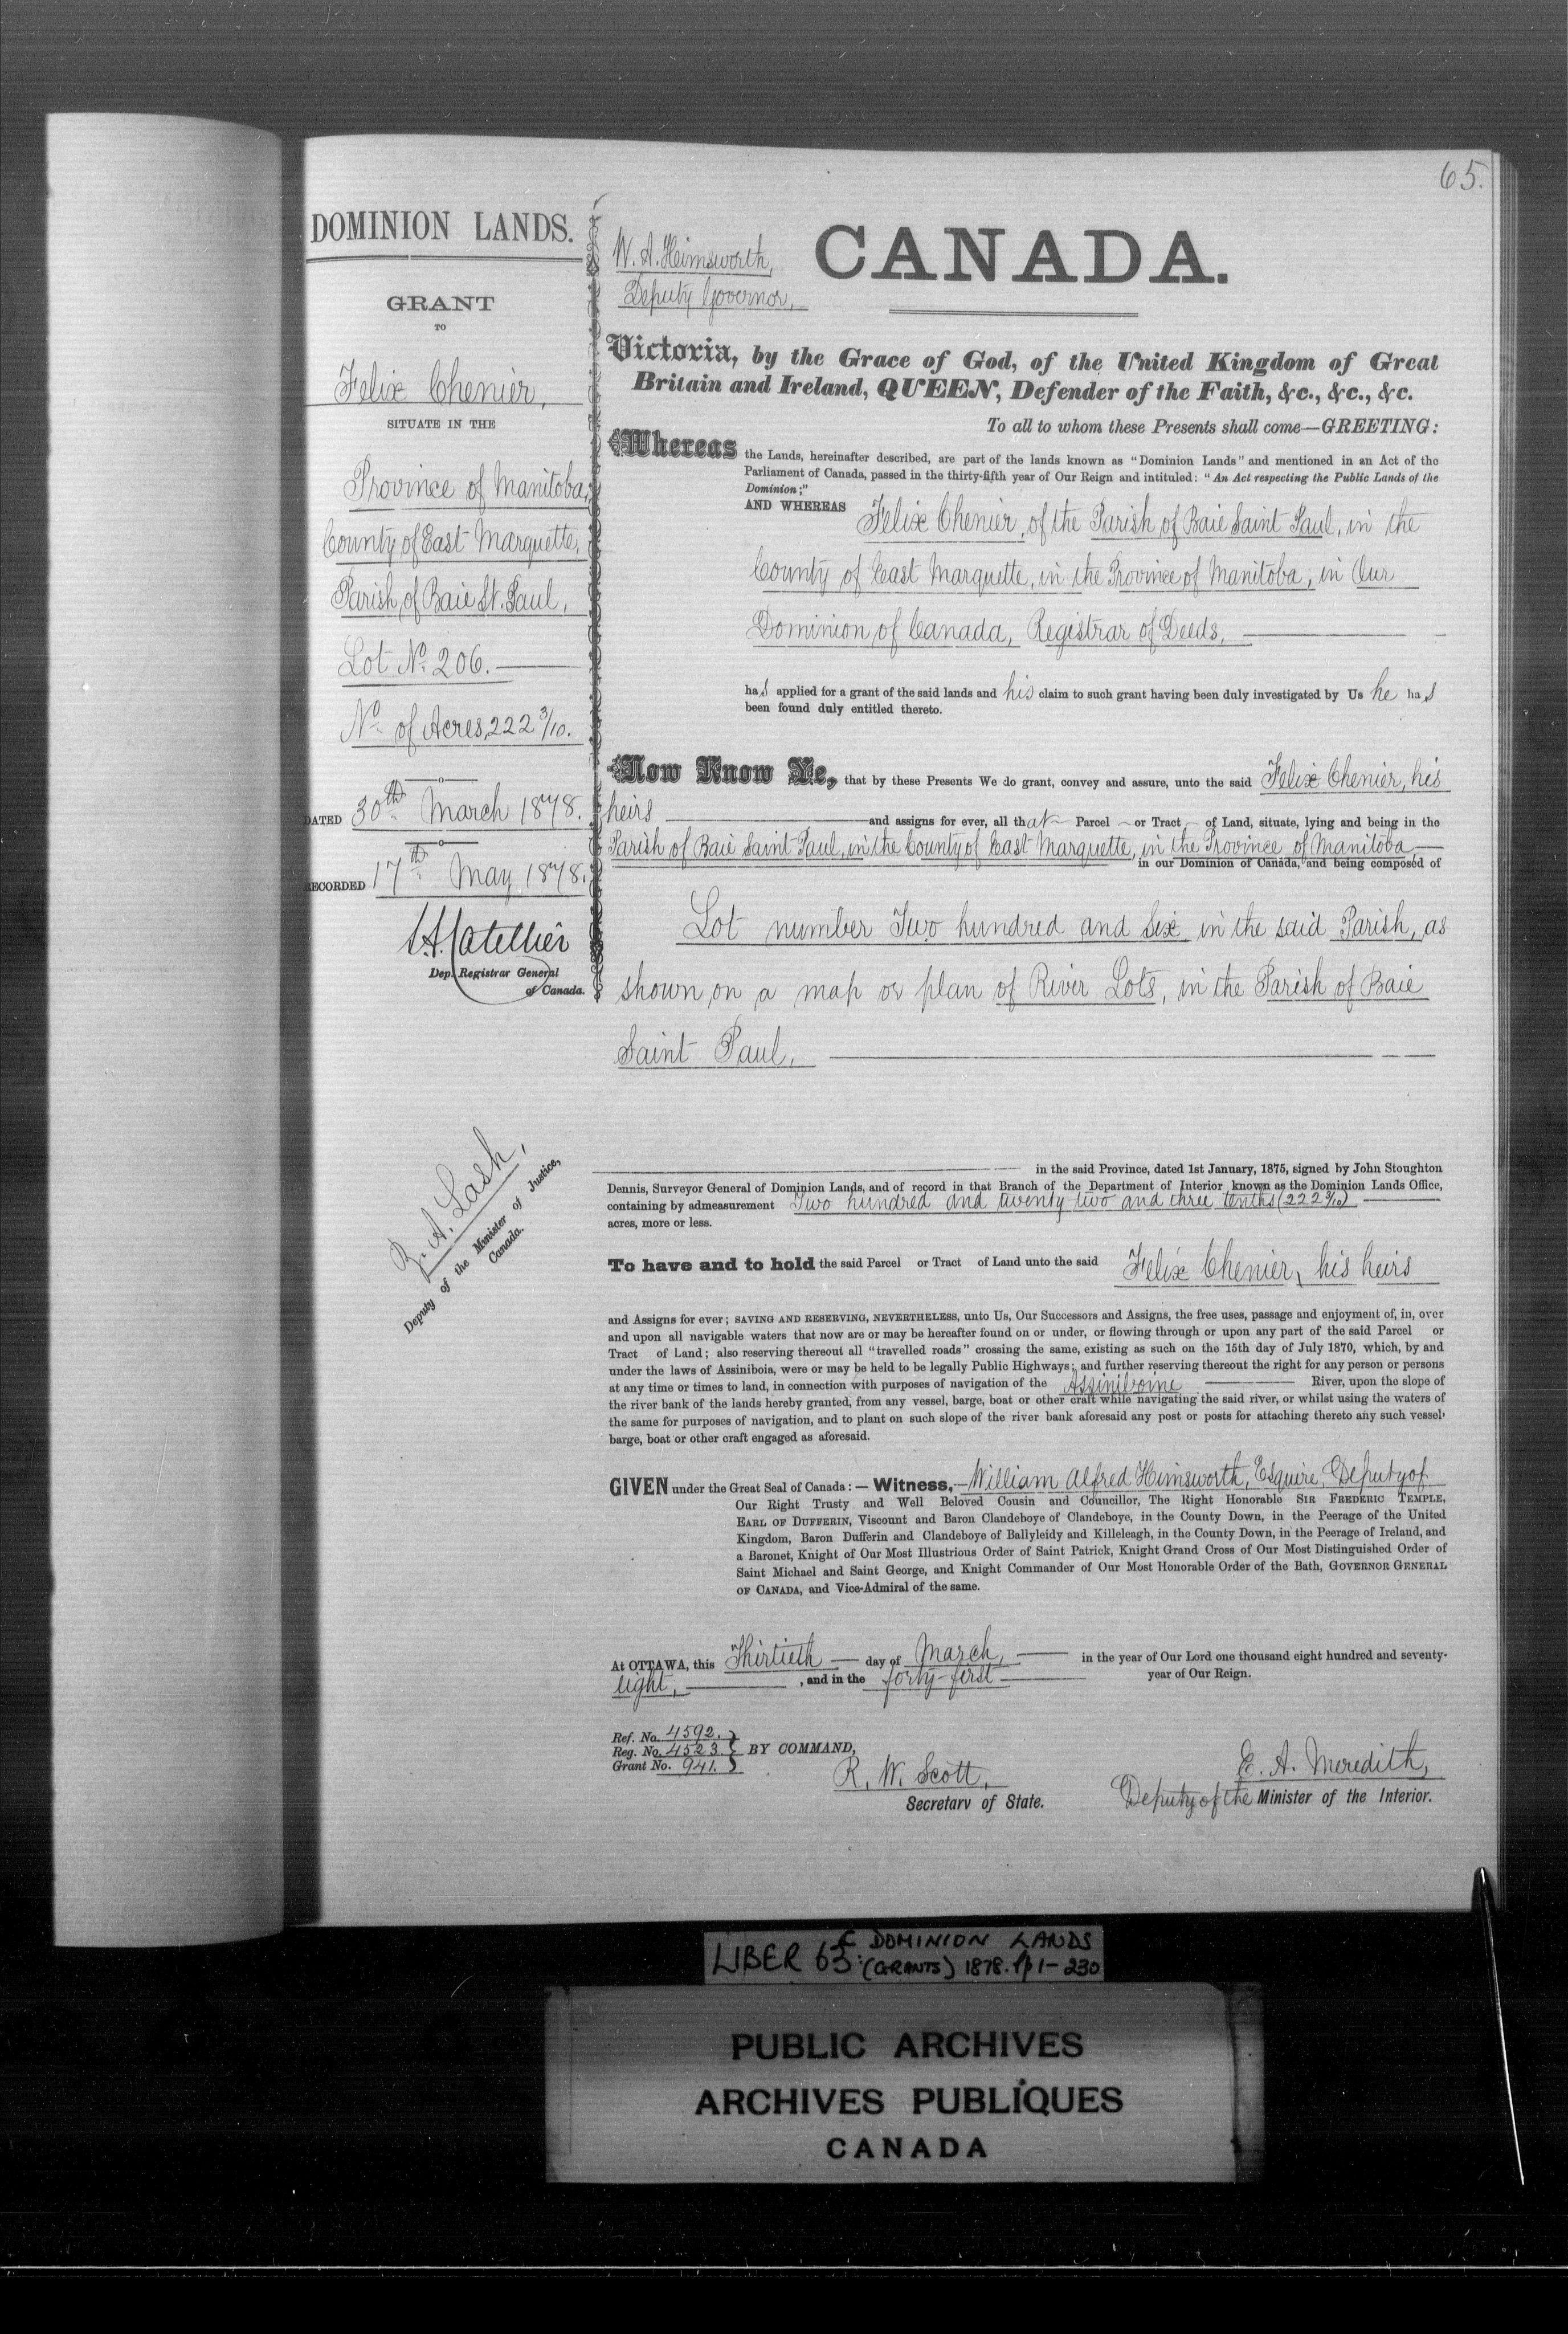 65.
DOMINION LANDS.
GRANT
TO
Felix Chenier,
SITUATE IN THE
Province of Manitoba,
County of East Marquette,
Parish of Baie St. Paul,
Lot No. 206.
No. of Acres, 222 3/10.
DATED 30th March 1878.
RECORDED 17th May 1878.
L.A. Catellier
Dep. Registrar General
of Canada.
Z. A. Lash,
Deputy of the Minister of Justice,
Canada.
W. A. Himsworth,
Deputy Governor,
CANADA.
Victoria, by the Grace of God, of the United Kingdom of Great
Britain and Ireland, QUEEN, Defender of the Faith, &c., &c., &c.
To all to whom these Presents shall come—GREETING:
Whereas the Lands, hereinafter described, are part of the lands known as "Dominion Lands" and mentioned in an Act of the
Parliament of Canada, passed in the thirty-fifth year of Our Reign and intituled: "An Act respecting the Public Lands of the
Dominion;"
AND WHEREAS Felix Chenier, of the Parish of Baie Saint Paul, in the
County of East Marquette, in the Province of Manitoba, in Our
Dominion of Canada, Registrar of Deeds,
has applied for a grant of the said lands and his claim to such grant having been duly investigated by Us he has
been found duly entitled thereto.
Now Know Ye, that by these Presents We do grant, convey and assure, unto the said Felix Chenier, his
heirs and assigns for ever, all that Parcel or Tract of Land, situate, lying and being in the
Parish of Baie Saint Paul, in the County of East Marquette, in the Province of Manitoba
in our Dominion of Canada, and being composed of
Lot number Two hundred and Six in the said Parish, as
shown on a map or plan of River Lots, in the Parish of Baie
Saint Paul,
in the said Province, dated 1st January, 1875, signed by John Stoughton
Dennis, Surveyor General of Dominion Lands, and of record in that Branch of the Department of Interior known as the Dominion Lands Office,
containing by admeasurement Two hundred and twenty two and three tenths (222 3/10)
acres, more or less.
To have and to hold the said Parcel or Tract of Land unto the said Felix Chenier, his heirs
and Assigns for ever; SAVING AND RESERVING, NEVERTHELESS, unto Us, Our Successors and Assigns, the free uses, passage and enjoyment of, in, over
and upon all navigable waters that now are or may be hereafter found on or under, or flowing through or upon any part of the said Parcel or
Tract of Land; also reserving thereout all "travelled roads" crossing the same, existing as such on the 15th day of July 1870, which, by and
under the laws of Assiniboia, were or may be held to be legally Public Highways; and further reserving thereout the right for any person or persons
at any time or times to land, in connection with purposes of navigation of the Assiniboine River, upon the slope of
the river bank of the lands hereby granted, from any vessel, barge, boat or other craft while navigating the said river, or whilst using the waters of
the same for purposes of navigation, and to plant on such slope of the river bank aforesaid any post or posts for attaching thereto any such vessel,
barge, boat or other craft engaged as aforesaid.
GIVEN under the Great Seal of Canada:—Witness,—William Alfred Himsworth, Esquire, Deputy of
Our Right Trusty and Well Beloved Cousin and Councillor, The Right Honorable SIR FREDERIC TEMPLE,
EARL OF DUFFERIN, Viscount and Baron Clandeboye of Clandeboye, in the County Down, in the Peerage of the United
Kingdom, Baron Dufferin and Clandeboye of Ballyleidy and Killeleagh, in the County Down, in the Peerage of Ireland, and
a Baronet, Knight of Our Most Illustrious Order of Saint Patrick, Knight Grand Cross of Our Most Distinguished Order of
Saint Michael and Saint George, and Knight Commander of Our Most Honorable Order of the Bath, GOVERNOR GENERAL
OF CANADA, and Vice-Admiral of the same.
At OTTAWA, this Thirtieth day of March, in the year of Our Lord one thousand eight hundred and seventy-
eight, , and in the forty-first year of Our Reign.
Ref. No. 4592.
Reg. No. 4523. BY COMMAND,
Grant No. 941.
R. W. Scott,
Secretary of State.
E. A. Meredith,
Deputy of the Minister of the Interior.
LIBER 63: C DOMINION LANDS
(GRANTS) 1878. pp 1-230
PUBLIC ARCHIVES
ARCHIVES PUBLIQUES
CANADA